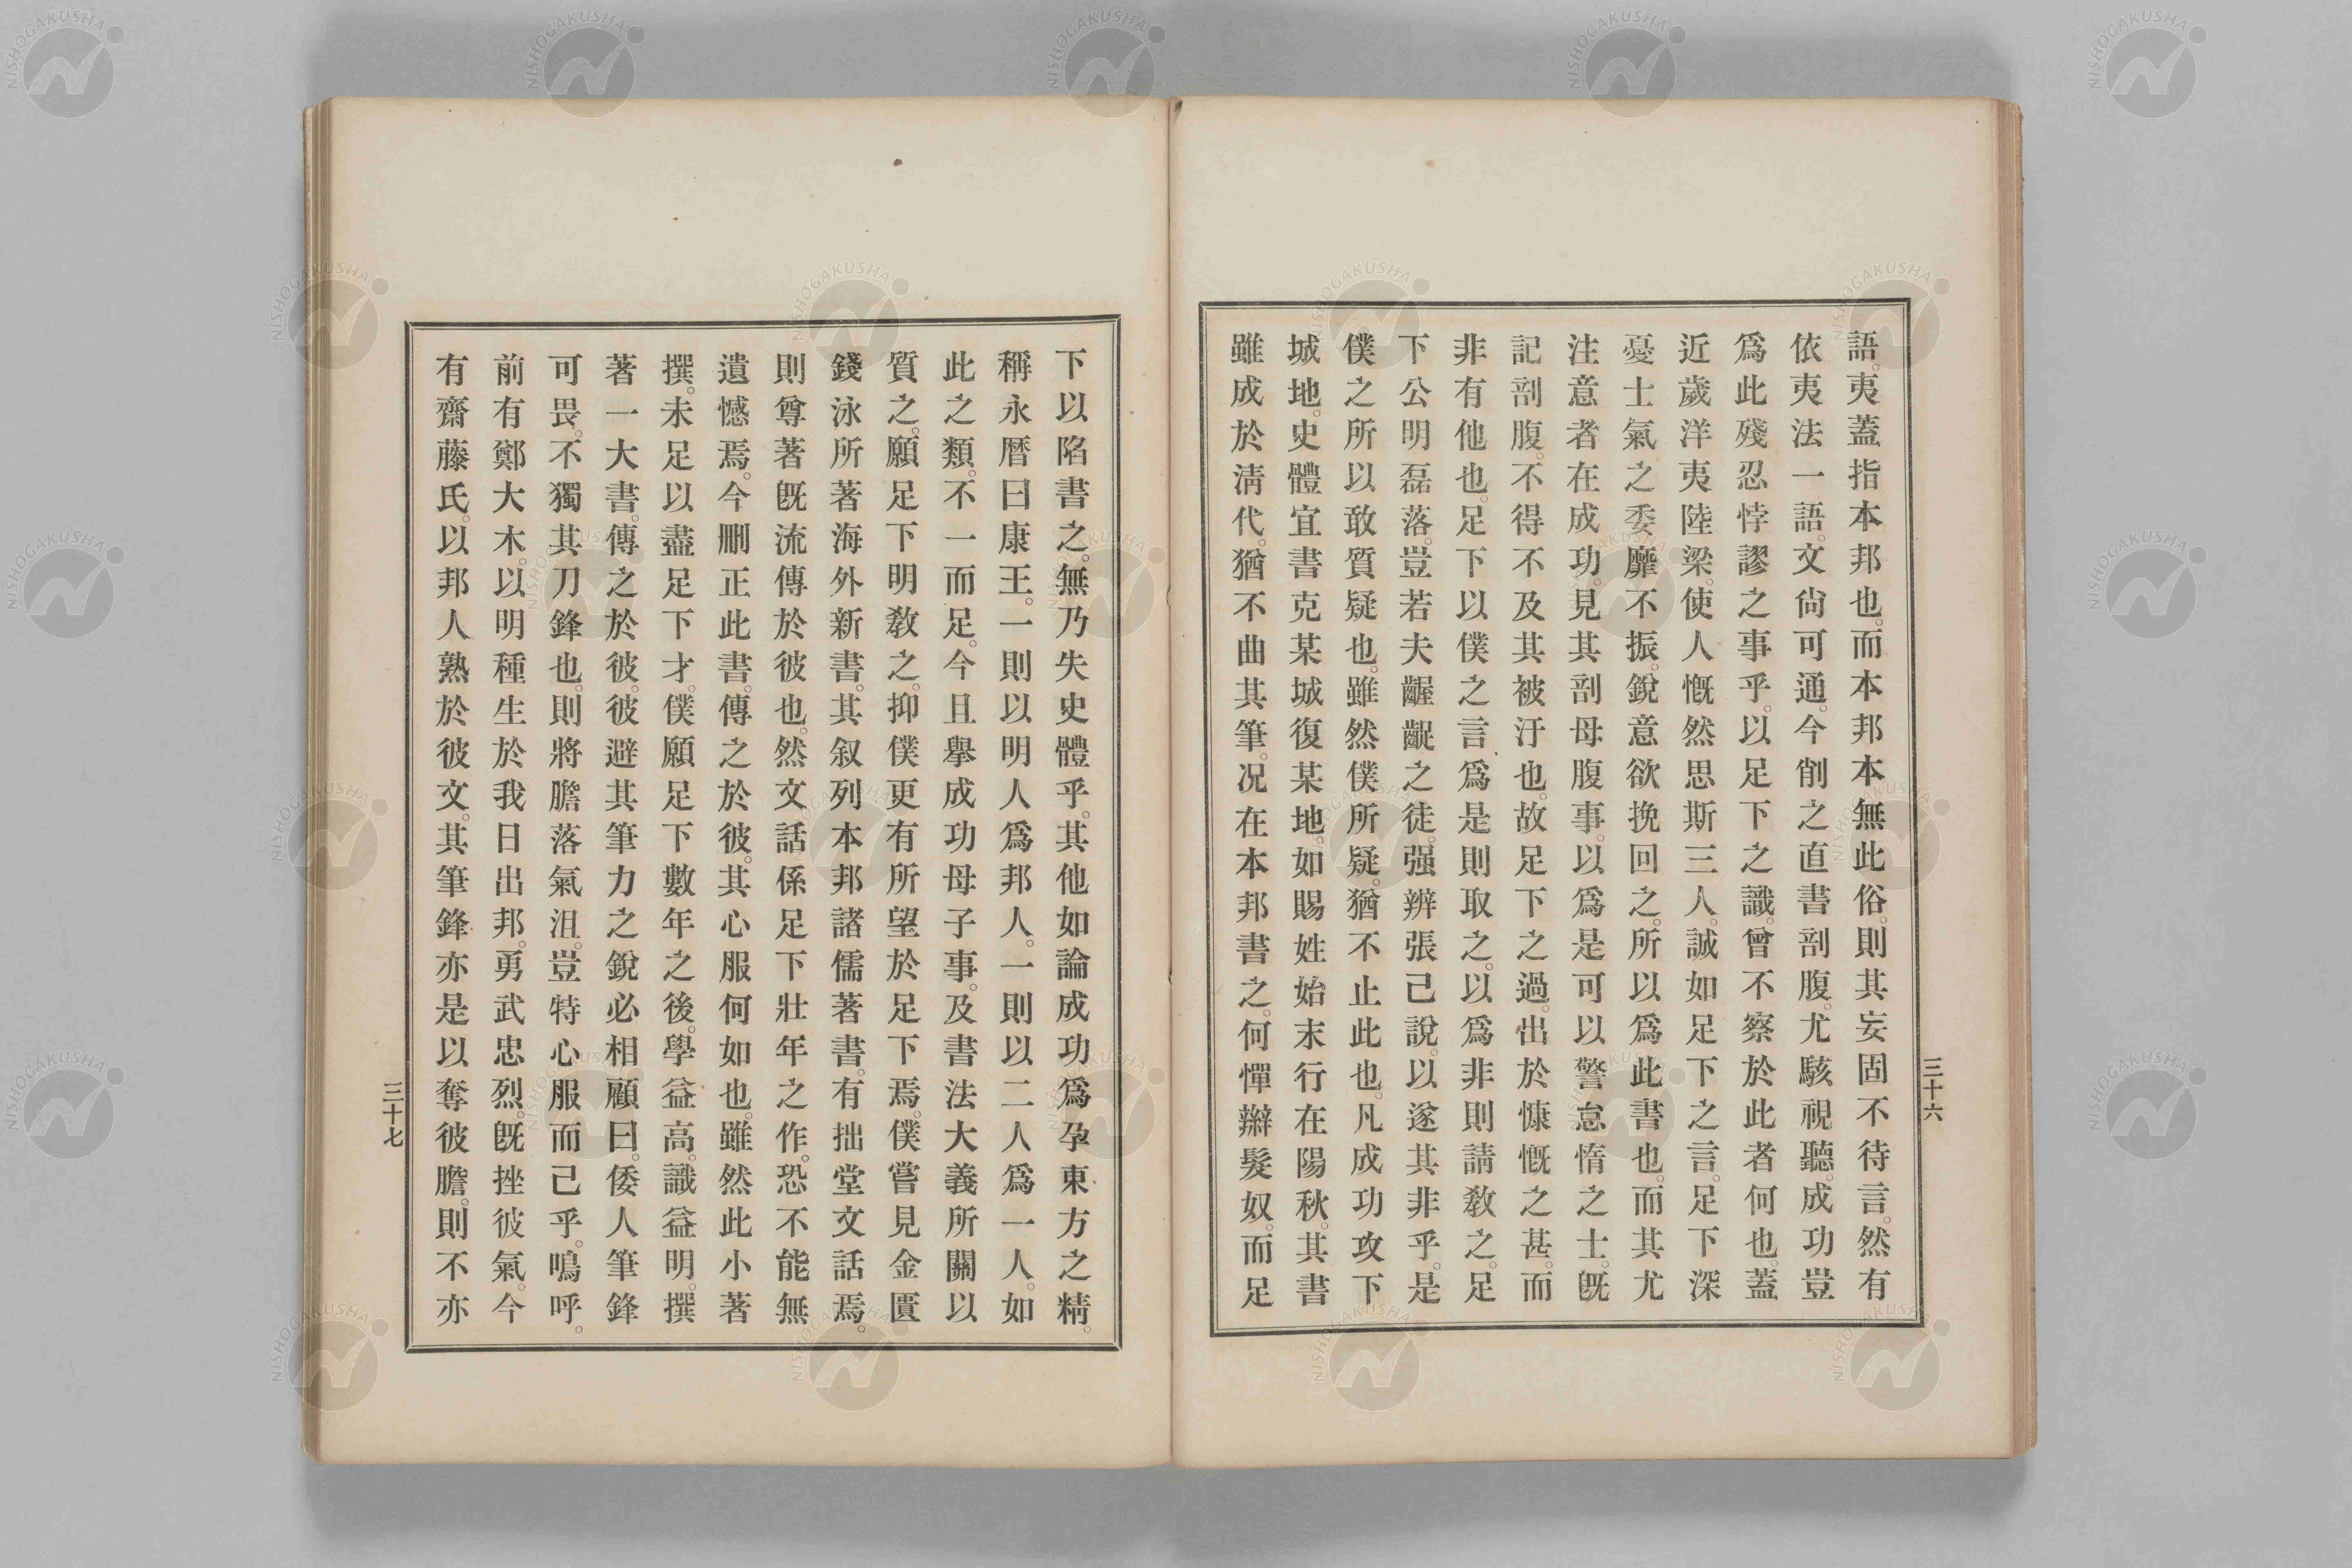 語。夷蓋指本邦也。而本邦本無此俗。則其妄固不待言。然有
依夷法一語。文尙可通。今削之直書剖腹。尤駭視聽。成功豈
爲此殘忍悖謬之事乎。以足下之識。曾不察於此者何也。蓋
近歲洋夷陸梁。使人慨然思斯三人。誠如足下之言。足下深
憂士氣之委靡不振。銳意欲挽回之。所以爲此書也。而其尤
注意者在成功。見其剖母腹事。以爲是可以警怠惰之士。旣
記剖腹。不得不及其被汙也。故足下之過。出於慷慨之甚。而
非有他也。足下以僕之言爲是則取之。以爲非則請敎之。足
下公明磊落。豈若夫齷齪之徒。强辨張己說。以遂其非乎。是
僕之所以敢質疑也。雖然僕所疑。猶不止此也。凡成功攻下
城地。史體宜書克某城復某地。如賜姓始末行在陽秋。其書
雖成於淸代。猶不曲其筆。况在本邦書之。何憚辮髮奴。而足
三十六
下以陷書之。無乃失史體乎。其他如論成功爲孕東方之精。
稱永曆曰康王。一則以明人爲邦人。一則以二人爲一人。如
此之類。不一而足。今且擧成功母子事。及書法大義所關以
質之。願足下明敎之。抑僕更有所望於足下焉。僕嘗見金匱
錢泳所著海外新書。其叙列本邦諸儒著書。有拙堂文話焉。
則尊著旣流傳於彼也。然文話係足下壯年之作。恐不能無
遺憾焉。今刪正此書。傳之於彼。其心服何如也。雖然此小著
撰。未足以盡足下才。僕願足下數年之後。學益高。識益明。撰
著一大書。傳之於彼。彼避其筆力之銳必相顧曰。倭人筆鋒
可畏。不獨其刀鋒也。則將膽落氣沮。豈特心服而已乎。嗚呼。
前有鄭大木。以明種生於我日出邦。勇武忠烈。旣挫彼氣。今
有齋藤氏。以邦人熟於彼文。其筆鋒亦是以奪彼膽。則不亦
三十七
NISHOGAKUSHA